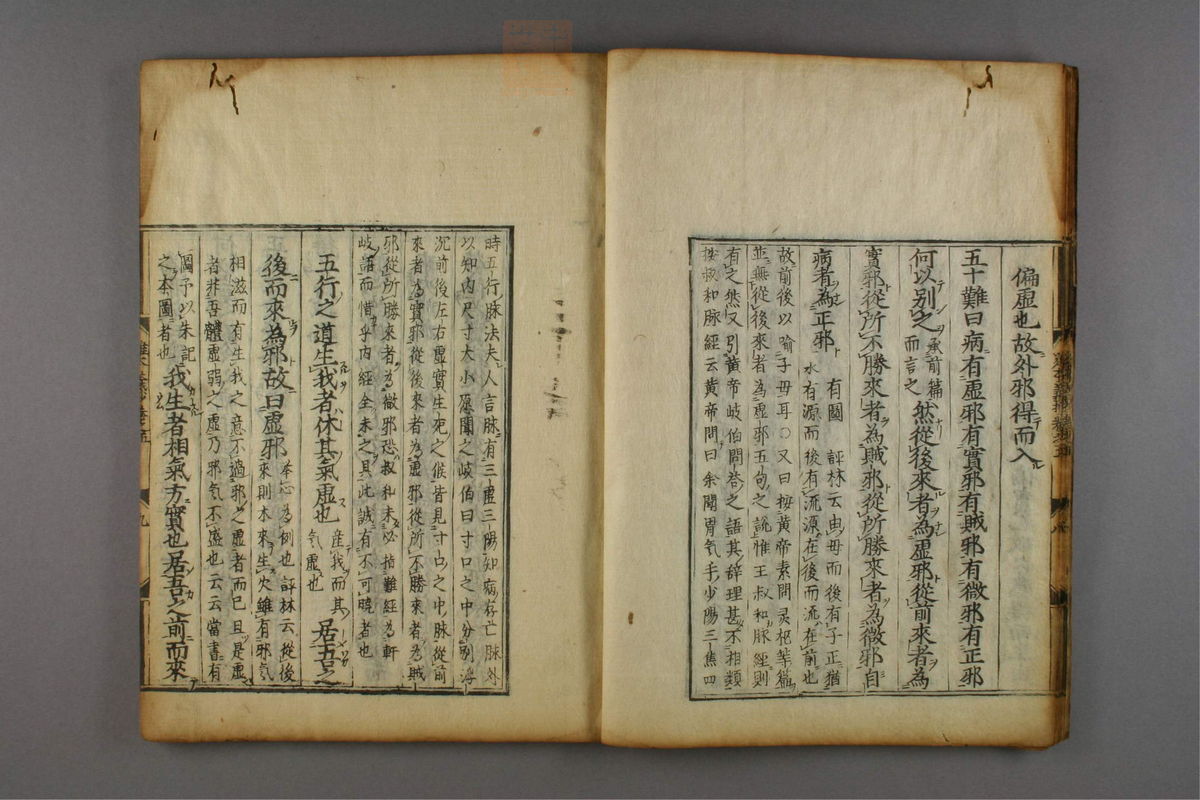 偏虛也故外邪得而入
五十難曰病有虛邪有實邪有賊邪有微邪有正邪
何以別之承前篇而言之然從後來者為虛邪從前來者為
實邪從所不勝來者為賊邪從所勝來者為微邪自
病者為正邪有圖評林云由母而後有子正猶
水有源而後有流源在後而流在前也
故前後以喻子母耳○又曰按黃帝素問灵枢等篇
並無從後來者為虛邪五句之說惟王叔和脉經則
有之然又引黃帝岐伯問荅之語其辞理甚不相類
按叔和脉經云黃帝問曰余聞胃气手少陽三焦四
時五行脉法夫人言脉有三陰三陽知病存亡脉外
以知內尺寸大小願聞之岐伯曰寸口之中分別浮
沉前後左右虛實生死之候皆見寸口之中脉從前
來者為實邪從後來者為虛邪從所不勝來者為賊
邪從所勝來者為微邪恐叔和未必指難經為軒
岐語而惜乎內經全未之具此誠有不可曉者也
五行之道生我者休其氣虛也產我而其气虛也居吾之
後而來為邪故曰虛邪本心為例也評林云從後
來則木來生火雖有邪氣
相滋而有生我之意不過邪之虛者而已且是虛
者非吾體虛弱之虛乃邪气不盛也云云當書有
圖予以朱記
之本圖者也我生者相氣方實也居吾之前而來